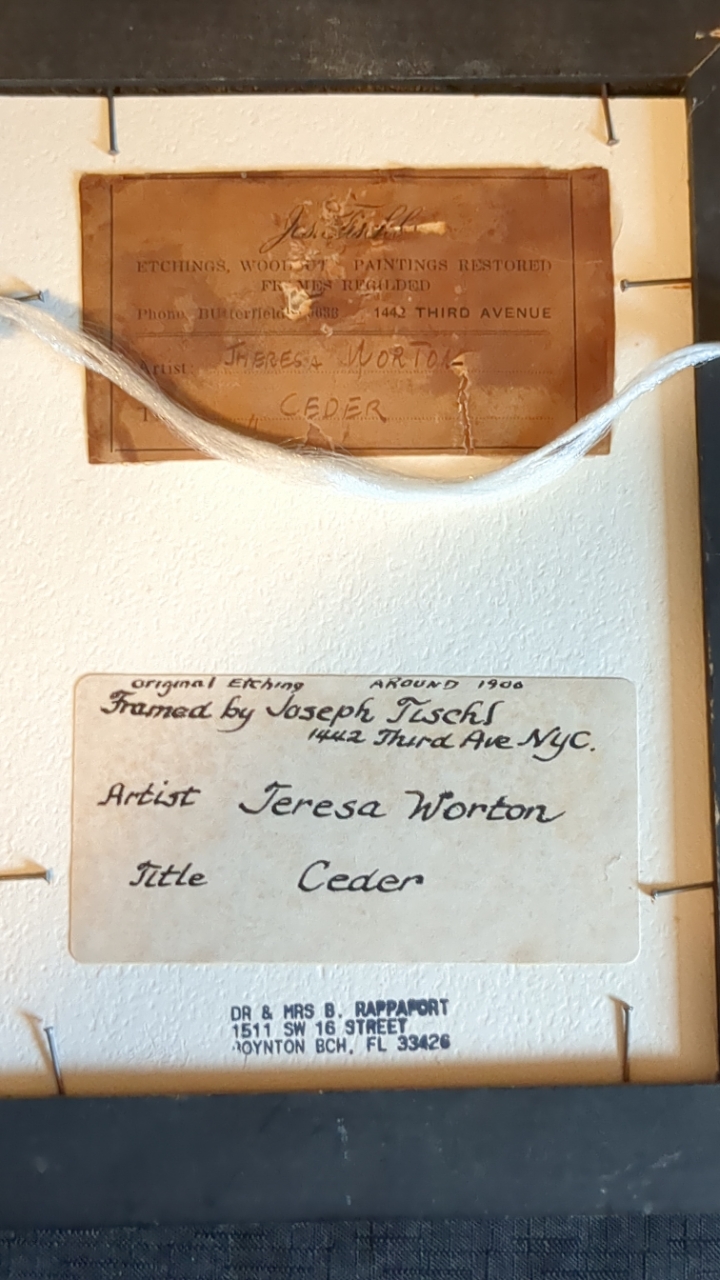 Jos. Tischl
ETCHINGS, WOODCUT PAINTINGS RESTORED
FRAMES REGILDED
Phone Butterfield 1442 THIRD AVENUE
Artist: THERESA WORTON
CEDER
Original Etching AROUND 1900
Framed by Joseph Tischl
1442 Third Ave NYC.
Artist Teresa Worton
Title Ceder
DR & MRS B. RAPPAPORT
1511 SW 16 STREET
BOYNTON BCH, FL 33426